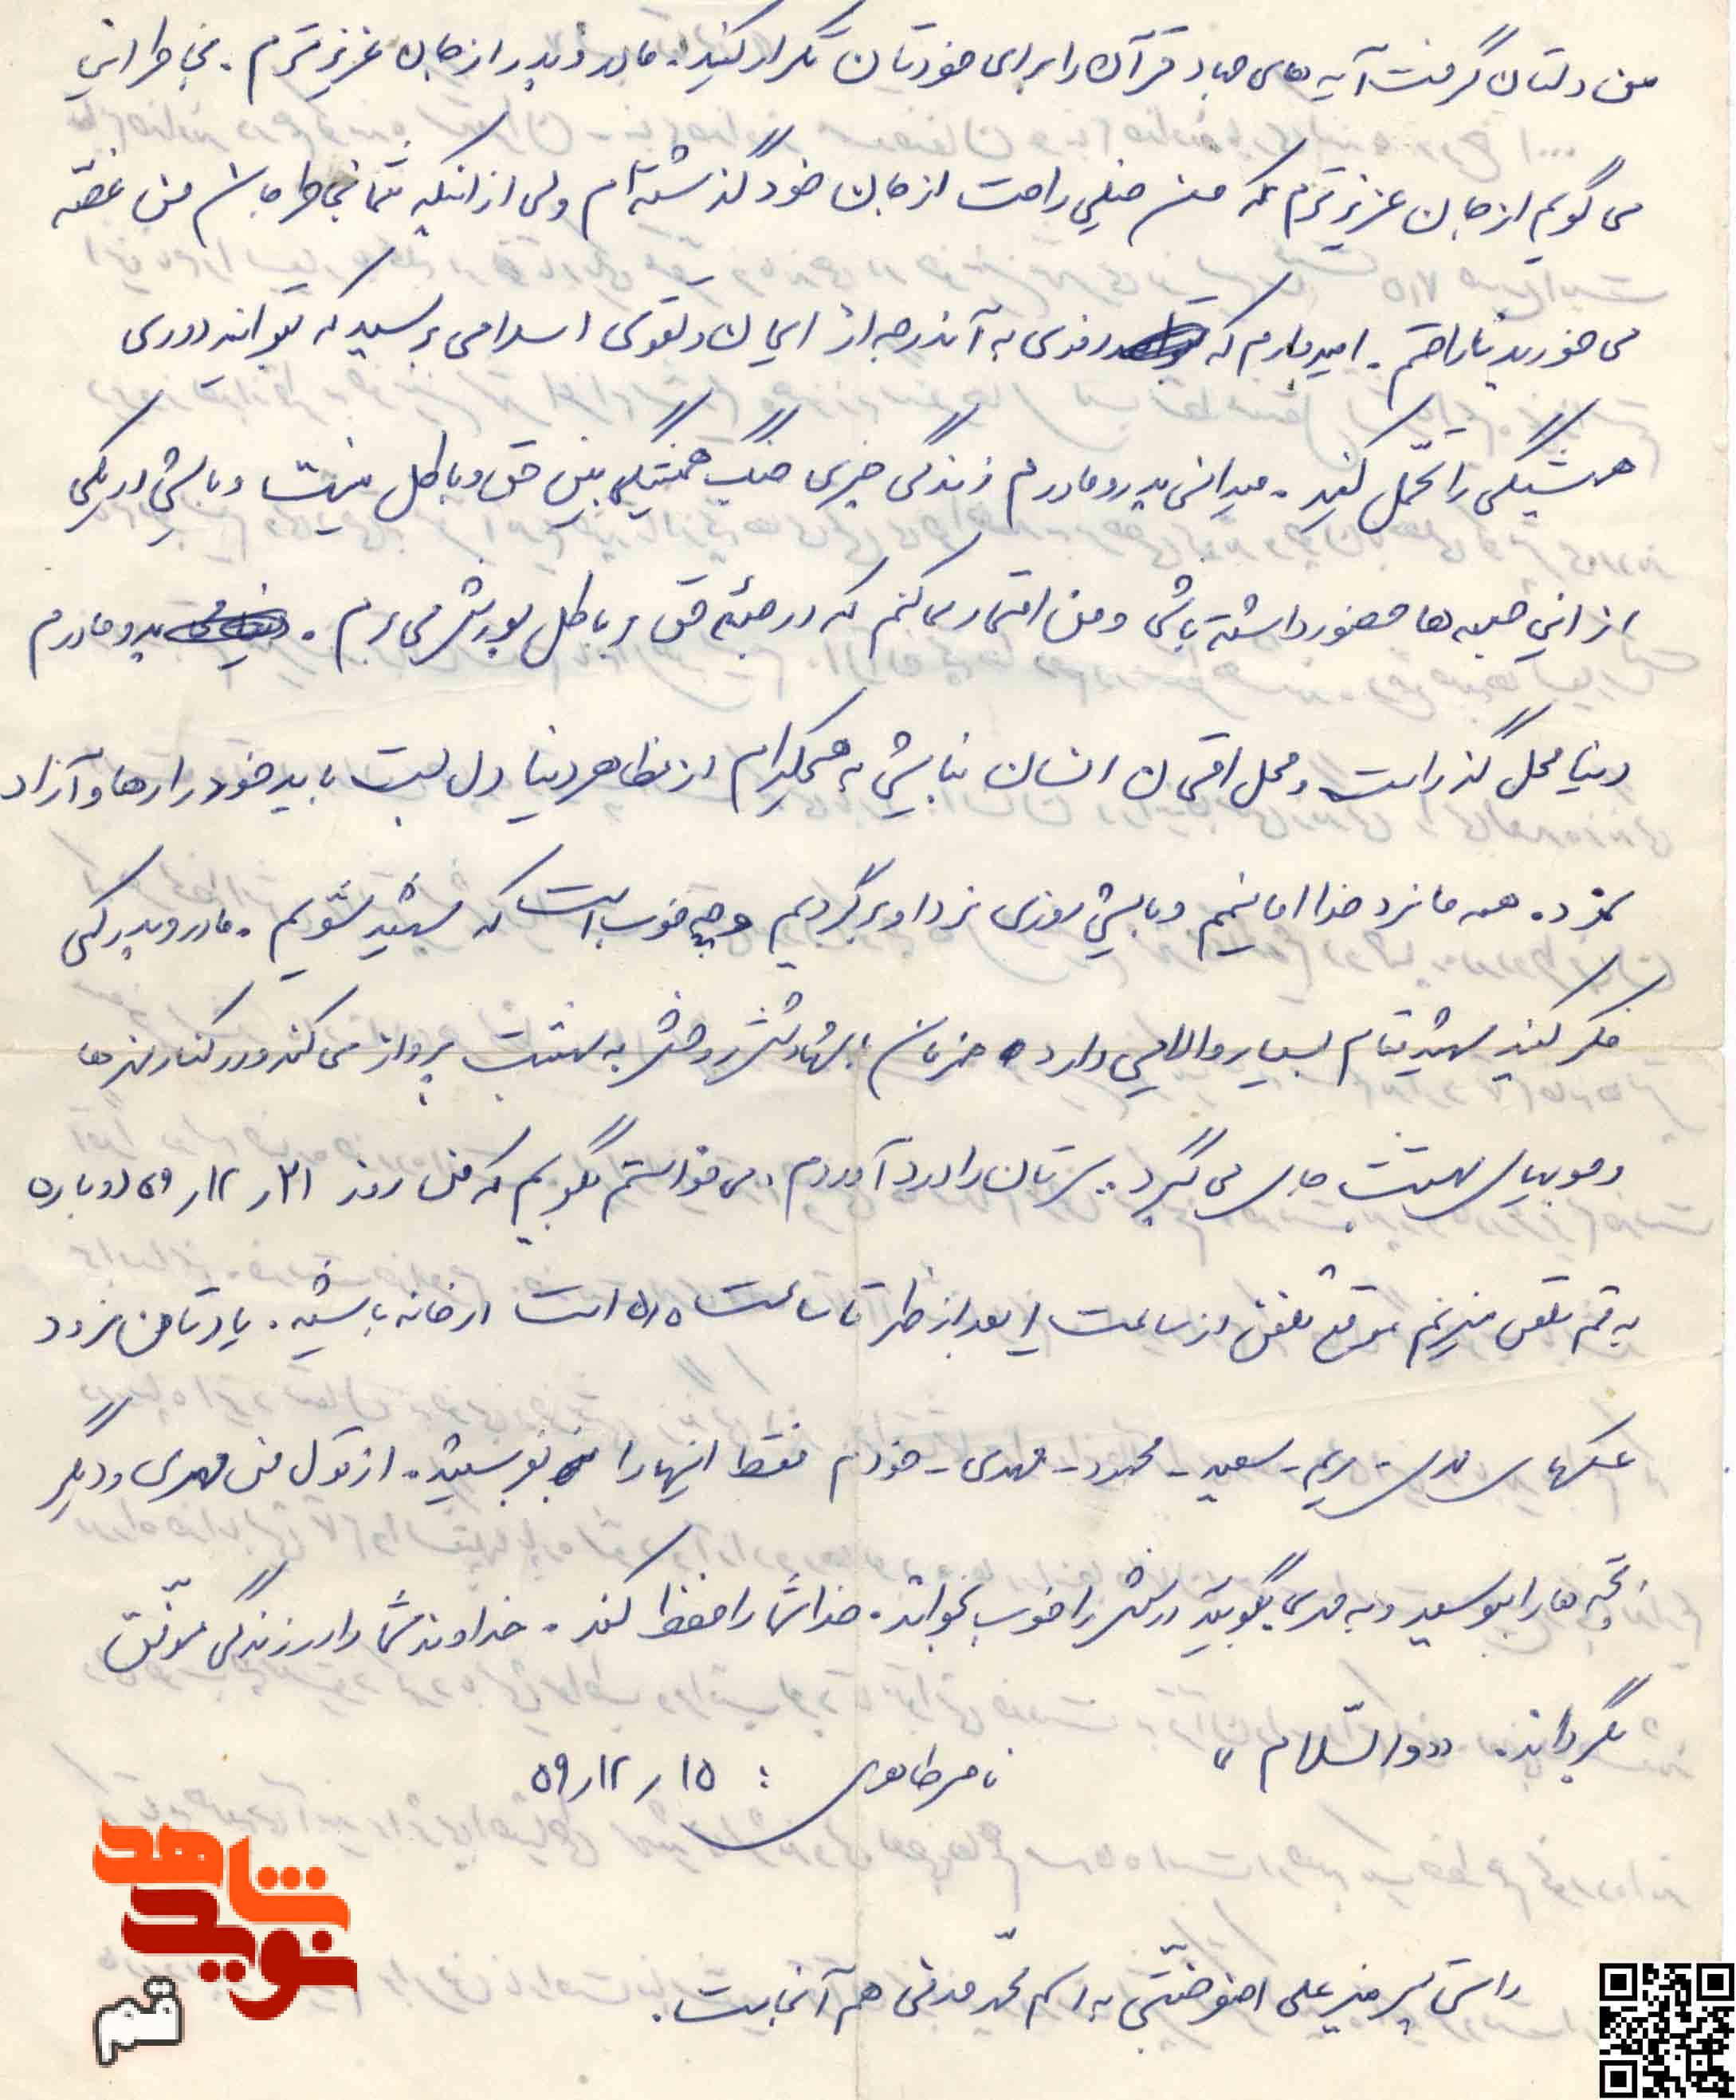 من دلتان گرفت آیه های جهاد قرآن را برای خودتان تکرار کنید. مادر و پدر از جان عزیزترم. بخاطر این
می گویم از جان عزیزترم که من خیلی راحت از جان خود گذشته ام ولی از اینکه شما بخاطر من غصه
می خورید ناراحتم. امیدوارم که روزی به آندرجه از ایمان و تقوی اسلامی برسید که بتوانید دوری
همیشگی را تحمّل کنید. میدانی پدر و مادرم زندگی چیزی جنگ همیشگی بین حق و باطل نیست و بایستی در یکی
از این جبهه ها حضور داشته باشی و من افتخار می کنم که در جبهۀ حق و باطل بسر می برم. پدر و مادرم
دنیا محل گذر است و محل امتحان انسان نبایستی به هیچکدام از مظاهر دنیا دل بست باید خود را رها و آزاد
نمود. همه ما نزد خدا امانتیم و بایستی روزی نزد او برگردیم و چه خوب است که شهید شویم. مادر و پدر کمی
فکر کنید شهید مقام بسیار والایی دارد همزمان با شهادتش روحش به بهشت پرواز می کند و در کنار نهرها
و جویبار بهشت جای می گیرد. سرتان را درد آوردم. می خواستم بگویم که من روز ۲۱ ر ۱۲ ر ۵۹ دوباره
به قم تلفن میزنم موقع تلفن از ساعت ۱ بعد از ظهر تا ساعت ۵ر۵ است در خانه باشید. یادتان نرود
عکسهای مریم - سعید - محمود - مهدی - خودم فقط اینها را بفرستید. از قول من مهدی و دیگر
بچه ها را ببوسید و به مهدی بگویید درسش را خوب بخواند. خدا شما را حفظ کند. خداوند شما را در زندگی موفّق
بگرداند. «والسّلام»
ناصر طاهری : ۱۵ ر ۱۲ ر ۵۹
راستی پسر علی اصغر به اسم محمّد هم آنجاست.
شاهد
نوید
قم